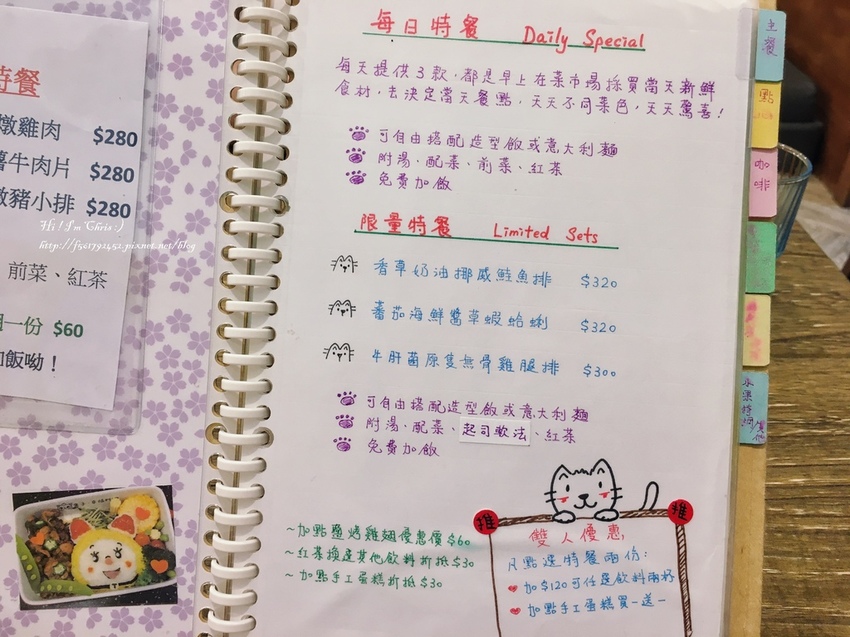 特餐
燉雞肉 $280
薯牛肉片 $280
燉豬小排 $280
Hi ! I'm Chris :)
http://f51792452.pixnet.net/blog
前菜、紅茶
一份 $60
加飯呦！
每日特餐 Daily Special
每天提供3款，都是早上在菜市場採買當天新鮮
食材，去決定當天餐點，天天不同菜色，天天驚喜！
可自由搭配造型飯或意大利麵
附湯、配菜、前菜、紅茶
免費加飯
限量特餐 Limited Sets
香草奶油挪威鮭魚排 $320
蕃茄海鮮醬草蝦蛤蜊 $320
牛肝菌原隻無骨雞腿排 $300
可自由搭配造型飯或意大利麵
附湯、配菜、起司軟法、紅茶
免費加飯
~加點鹽烤雞翅優惠價$60
~紅茶換其他飲料折抵$30
~加點手工蛋糕折抵$30
推 推
雙人優惠，
凡點選特餐兩份：
加$120可任選飲料兩杯
加點手工蛋糕買一送一
主餐
點
咖啡
其他